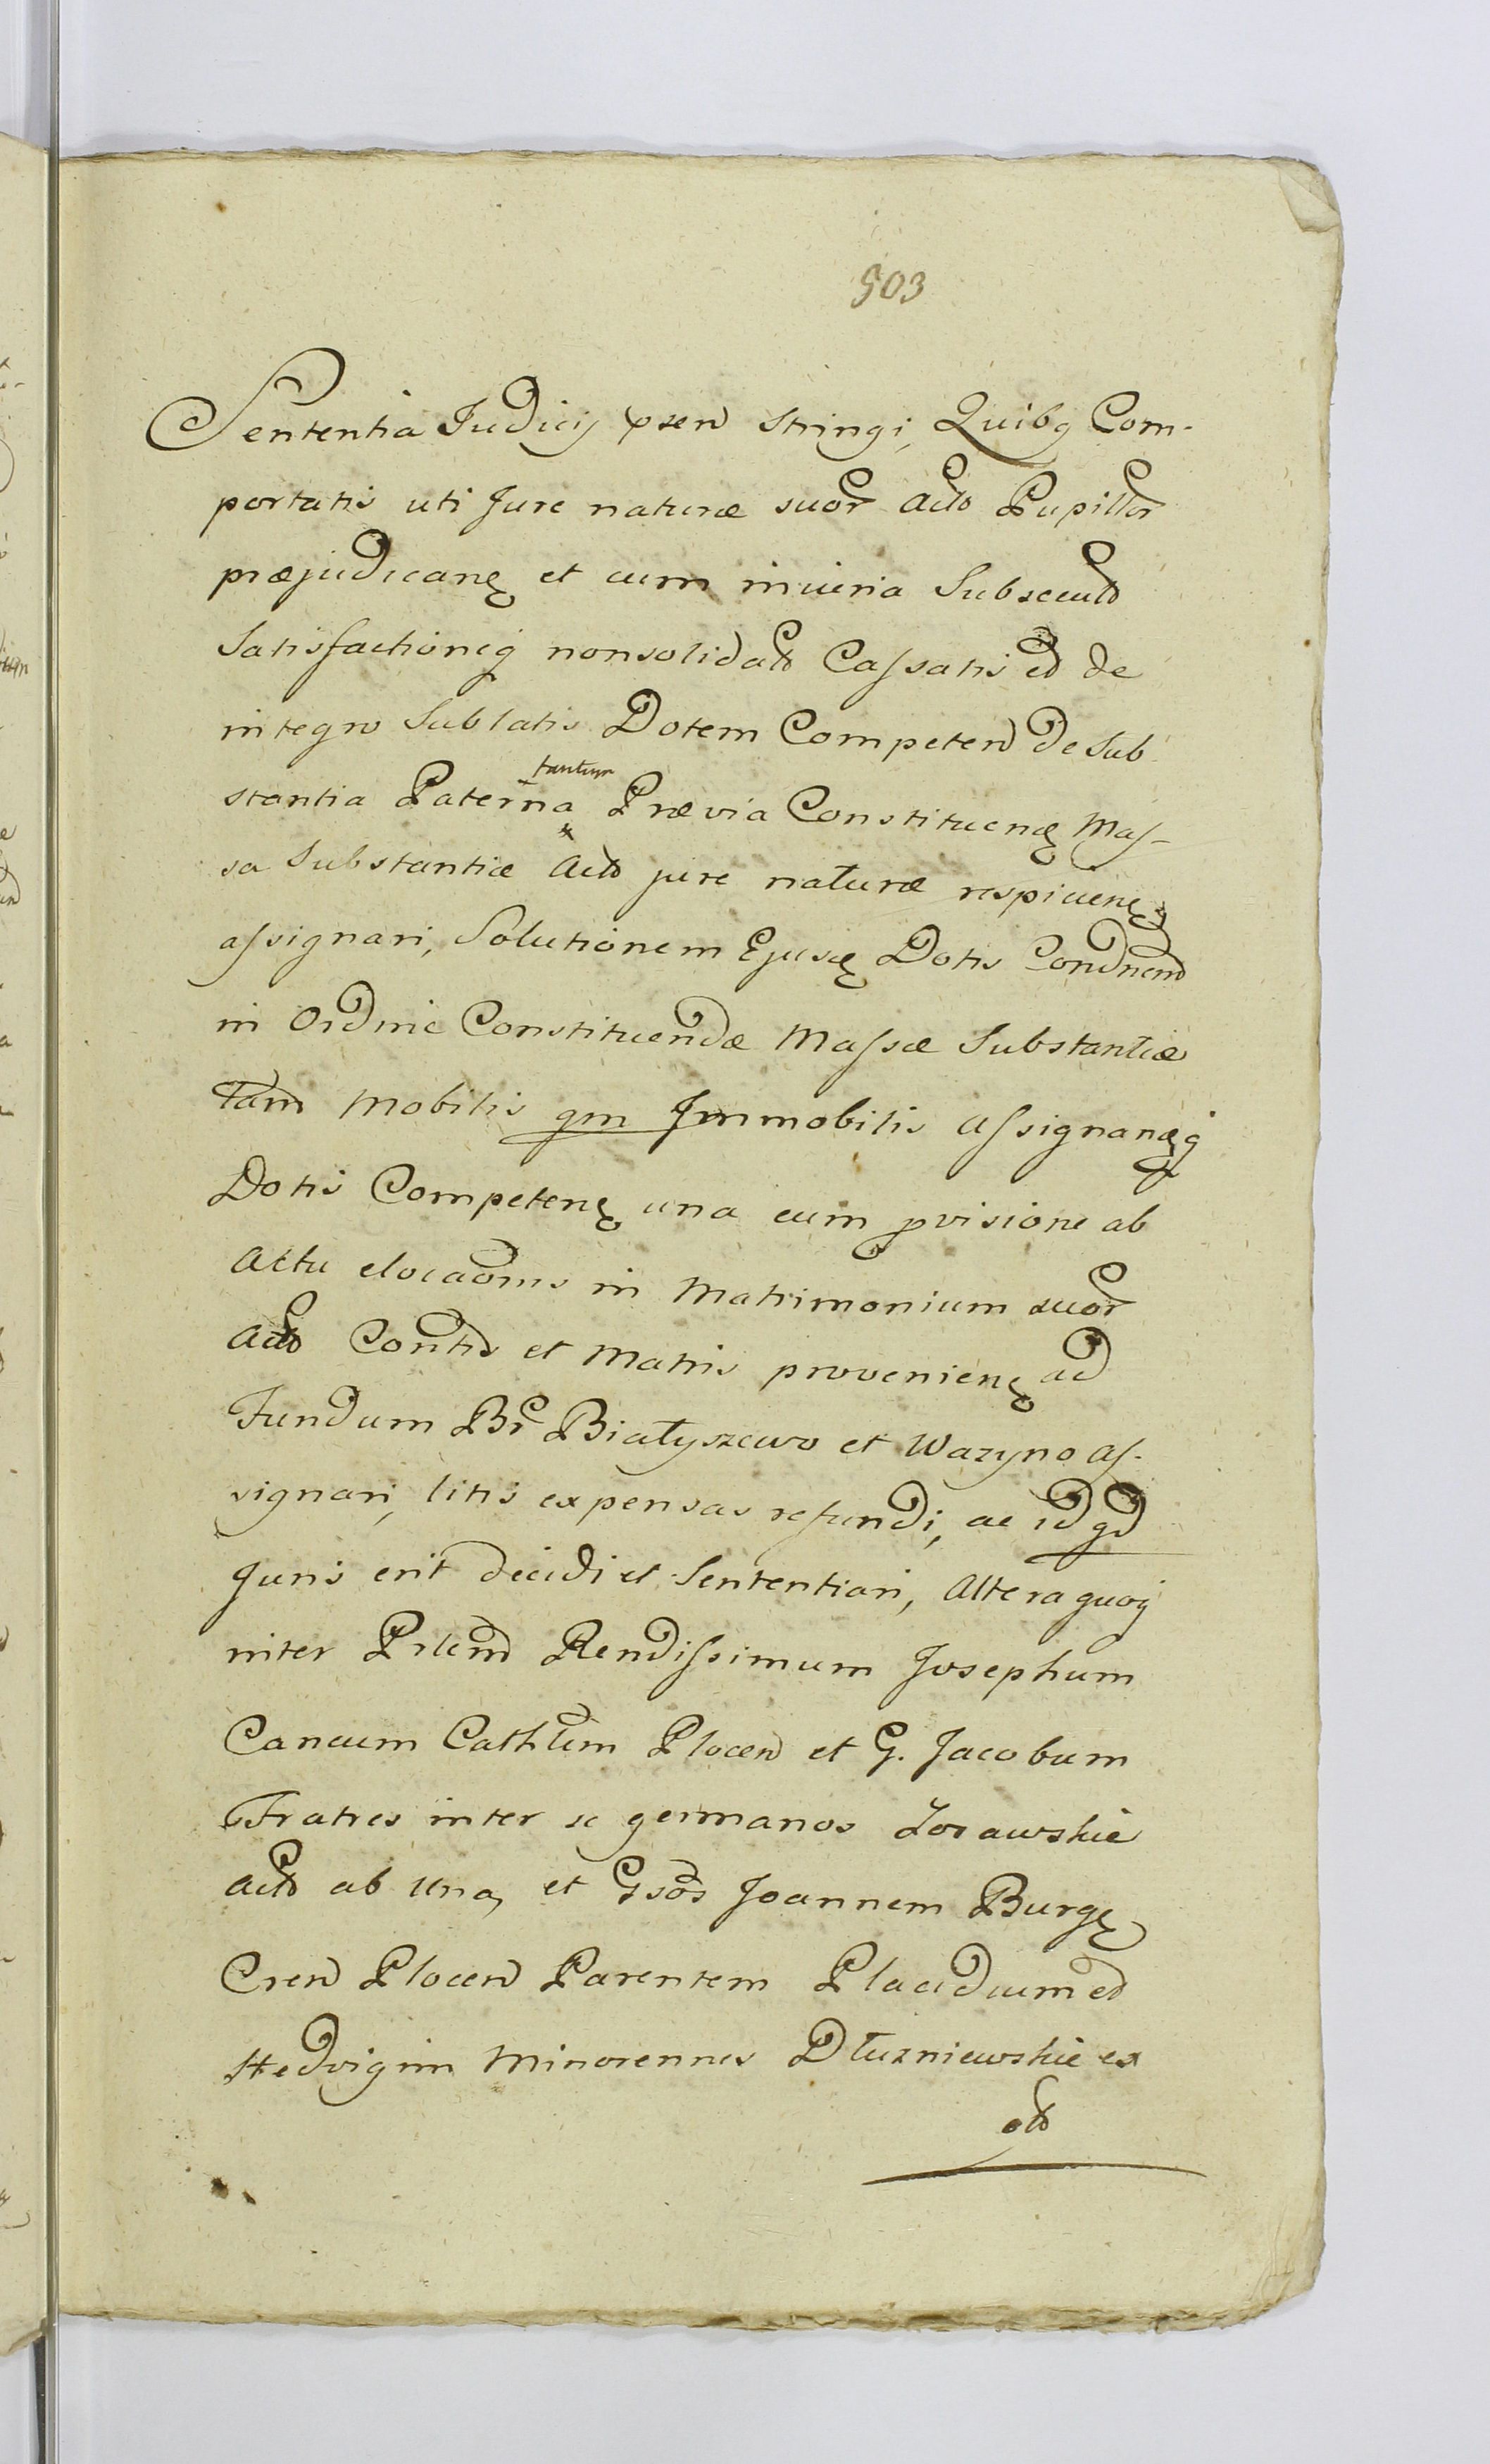 903
Sententia Judicij prsen stringi, Quibq Com-
portatis uti Jure naturæ suor acto Pupillor
præjudicanę et cum iniuria Subsecuto
Satisfactioneq nonsolidato Cassatis ed de
integro Sublatis Dotem Competen de Sub-
tantum
stantia Paterna Prævia Constituenę Mas-
sa Substantiæ Acto jure naturæ respicienę
assignari, Solutionem Ejusdę Dotis Condnend
in Ordine Constituendæ Massæ Substantiæ
Tam Mobilis qm Immobilis Assignanæq
Dotis Competenę una cum pvisione ab
Actu elocaonis in Matrimonium suor
Acto Contis et Matris provenienę ad
Fundum Br Białyszewo et Wazyno as-
signari, litis expensas refundi, ac id qd
Juris erit decidi et Sententiari, Altera quoq
inter Prlem Rendissimum Josephum
Cancum Cathlem Plocen et G. Jacobum
Fratres inter se germanos Zorawskie
acto ab Una, et Gsos Joannem Burgę
Cren Plocen Parentem Placidium ed
Hedvigim Minorennes Dłuzniewskie ex